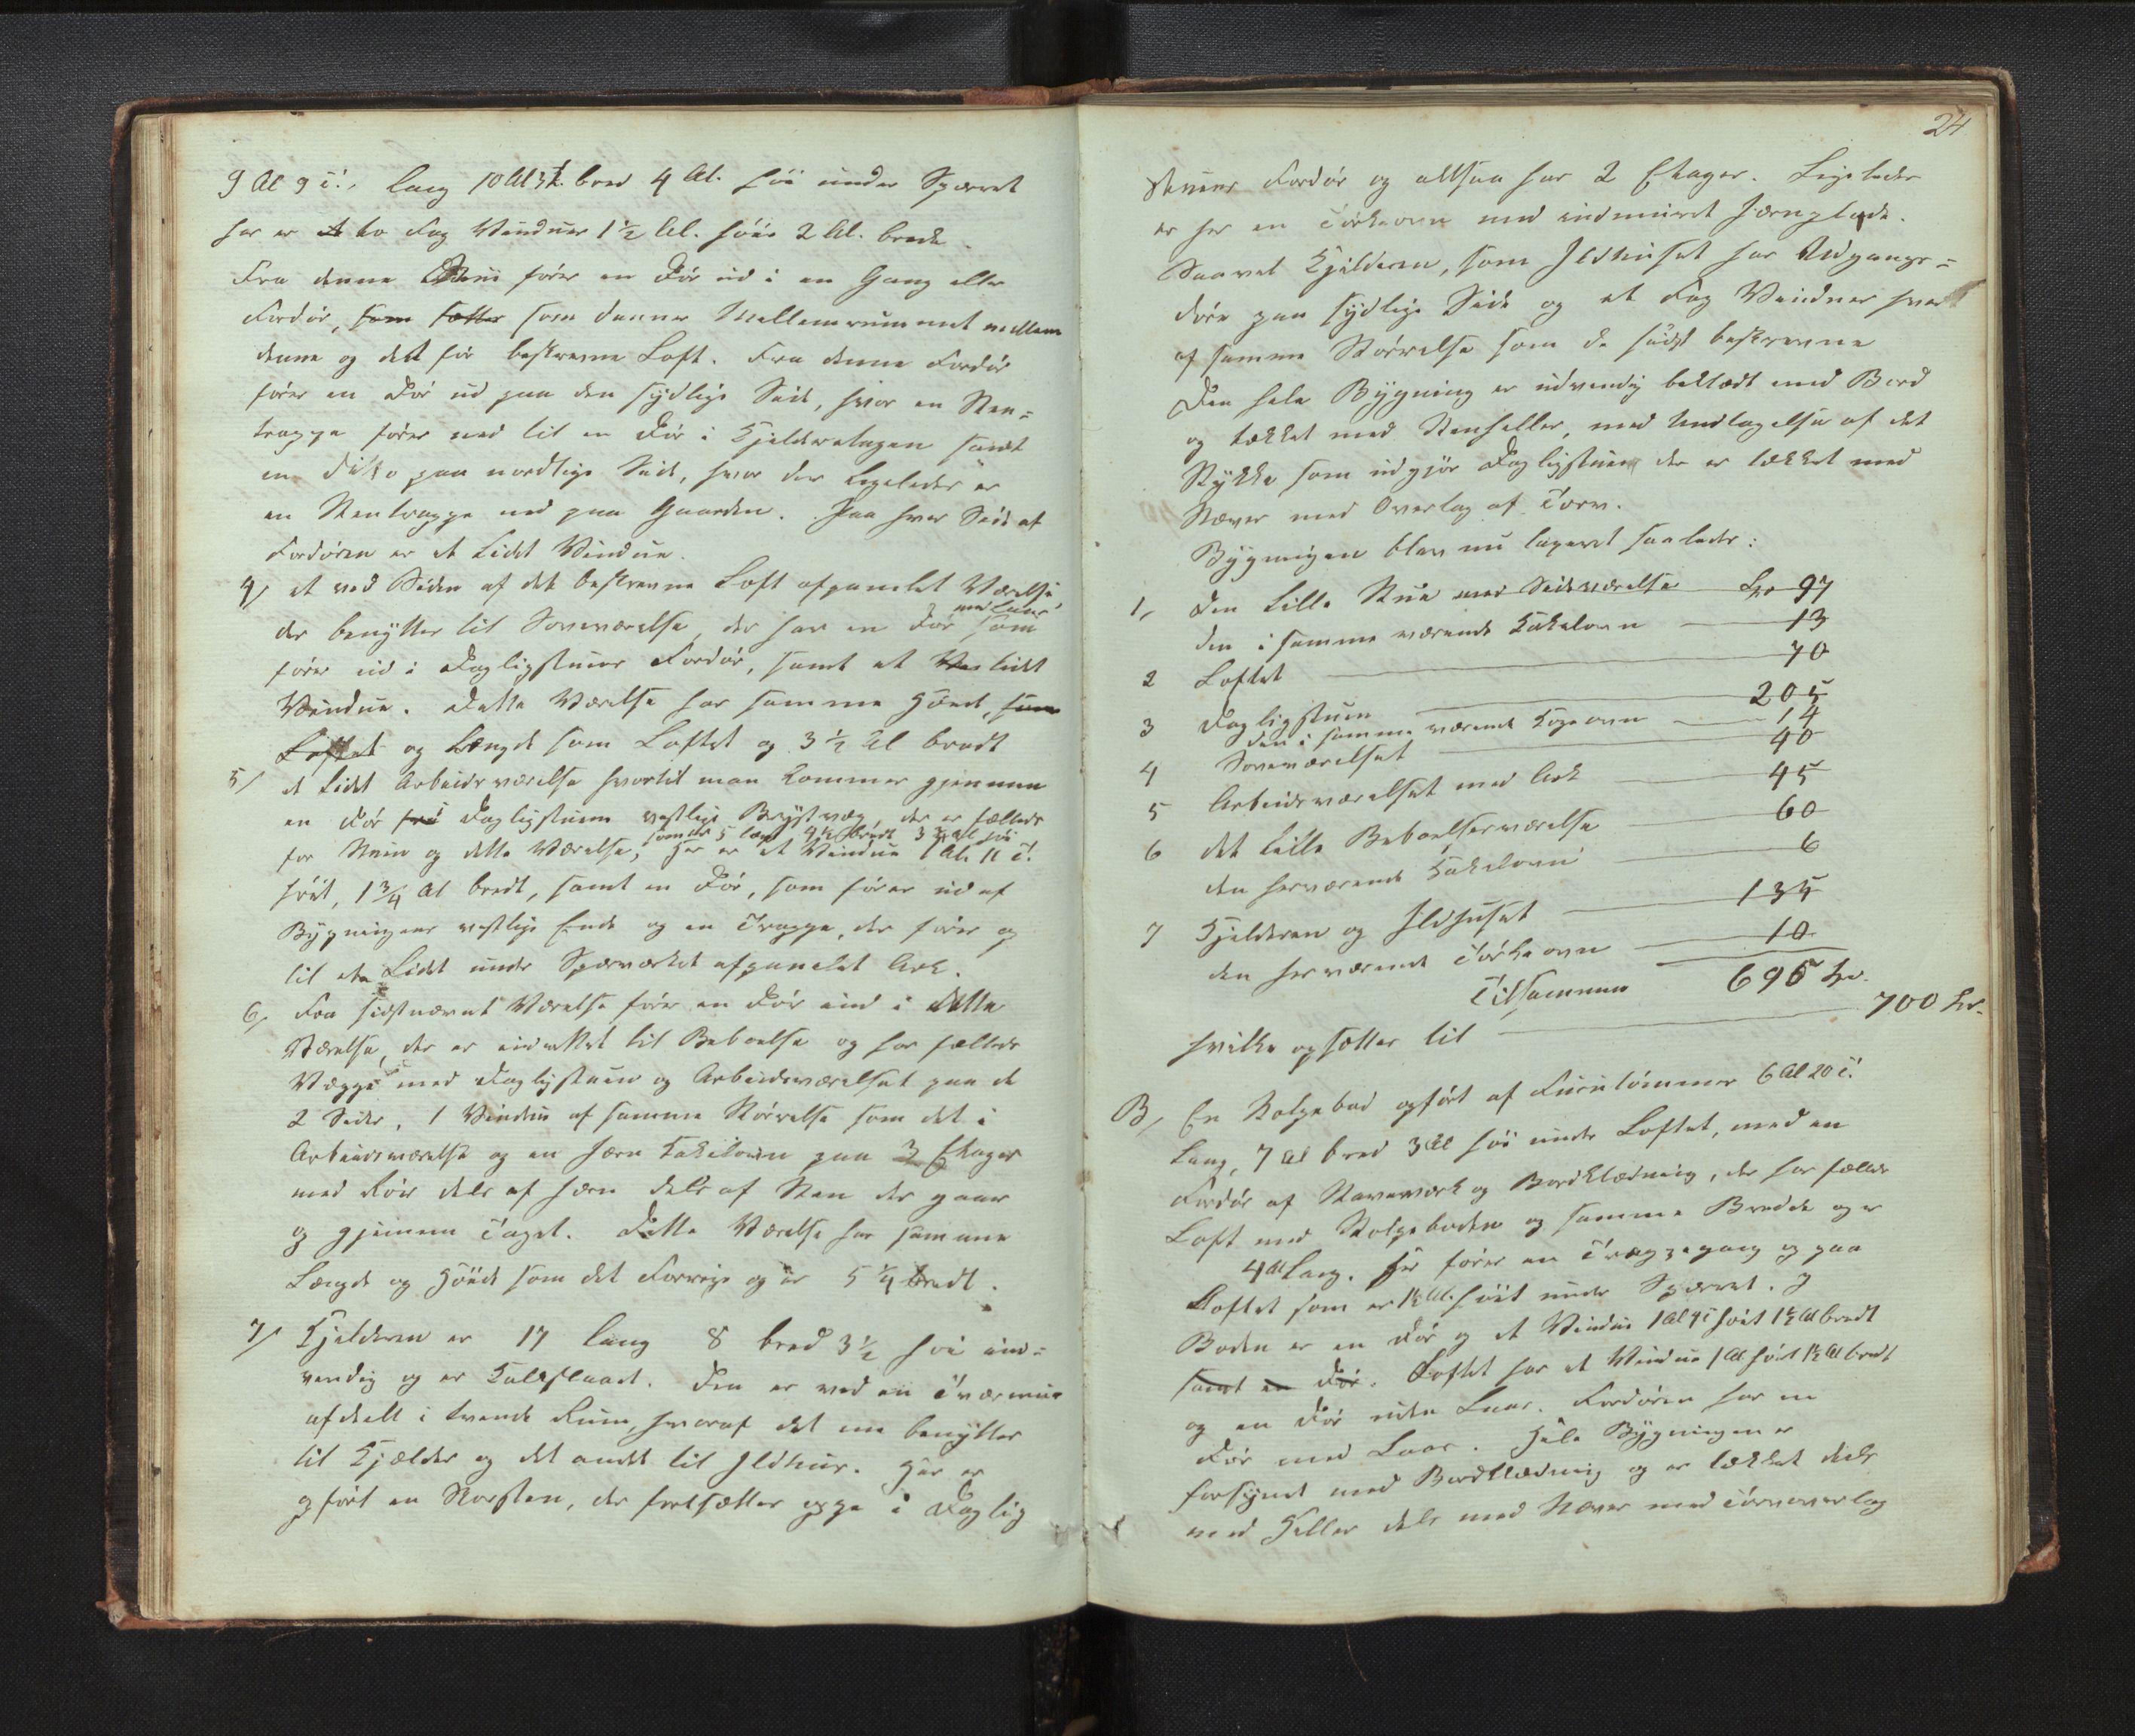 9 Al 9 T., lang 10 Al 3 T. bred 4 Al. høi under Sparret
her er to Fag Vinduer 1½ Al. høie 2 Al. brede.
Fra denne Stue fører en Dør ud i en Gang eller
Fordør, som sætter som danner Mellemrummet mellem
denne og det før beskrevne Loft. Fra denne Fordør
fører en Dør ud paa den sydlige Side, hvor en Sten=
trappe fører ned til en Dør i Kjelderetagen samt
en ditto paa nordlige Side, hvor der ligeledes er
en Stentrappe ned paa Gaarden. Paa hver Side af
Fordøren er et lidet Vindue.
4/ et ved Siden af det beskrevne Loft afpanelet Værelse
der benyttes til Soveværelse, der har en Dør med Laas som
fører ud i Dagligstuens Fordør, samt et lidet
Vindue. Dette Værelse har samme Høide, som
Loftet og Længde som Loftet og 3½ Al bredt
5/ et lidet Arbeidsværelse hvortil man kommer gjennem
en Dør fra i Dagligstuens vestlige Brystvæg, der er fælleds
som er 5 lang, 4½ bredt 3¾ Al høi
for Stuen og dette Værelse, her er et Vindue 1 Al. 11 T.
høit, 1¾ Al bredt, samt en Dør, som fører ud af
Bygningens vestlige Ende og en Trappe, der fører op
til et lidet under Sparværket afpanelet Ark.
6/ Fra sidstnævnte Værelse fører en Dør ind i dette
Værelse, der er indrettet til Beboelse og har fælleds
Vægge med Dagligstuen og Arbeidsværelset paa de
2 Sider, 1 Vindue af samme Størrelse som det i
Arbeidsværelse og en Jern Kakelovn paa 3 Etager
med Rør dels af Jern dels af Sten der gaar
op gjennem Taget. Dette Værelse har samme
Længde og Høide som det Forrige og er 5¼ bredt.
7/ Kjelderen er 17 lang 8 bred 3½ høi ind=
vendig og er Kalkslaaet. Den er ved en Tværmur
afdelt i tvende Rum, hvoraf det ene benyttes
til Kjelder og det andet til Ildhus. Her er
opført en Skorsten, der fortsætter oppe i Daglig
24
stuens Fordør og altsaa har 2 Etager. Ligeledes
er her en Tørkeovn med indmuret Jernplade.
Saavel Kjelderen, som Ildhuset har Udgangs=
døre paa sydlige Side og et Fag Vinduer hver
af samme Størrelse som de sidst beskrevne
Den hele Bygning er udvendig beklædt med Bord
og tækket med Stenheller, med Undtagelse af det
Stykke som udgjør Dagligstuen der er tækket med
Næver med Overlag af Torv.
Bygningen blev nu taxeret saaledes:
1, Den lille Stue med Sideværelse — Kr 97
den i samme værende Kakelovn — 13
2 Loftet — 70
3 Dagligstuen — 205
den i samme værende Kogeovn — 14
4 Soveværelset — 40
5 Arbeidsværelset med Ark — 45
6 det lille Beboelsesværelse — 60
den herværende Kakelovn — 6
7 Kjelderen og Ildhuset — 135
den herværende Tørkeovn — 10
Tilsammen 695 Kr.
hvilke opsættes til — 700 Kr.
B, En Stolpebod opført af Furutømmer 6 Al 20 T.
lang, 7 Al bred 3 Al høi under Loftet, med en
Fordør af Staveværk og Bordklædning, der har fælles
Loft med Stolpeboden og samme Bredde og er
4 Al lang. Her fører en Trappegang op paa
Loftet som er 1½ Al. høit under Sparret. I
Boden er en Dør og et Vindue 1 Al 4 T høit 1½ Al bredt
samt en Dør. Loftet har et Vindue 1 Al høit 1½ Al bredt
og en Dør uden Laas. Fordøren har en
Dør med Laas. Hele Bygningen er
forsynet med Bordklædning og er tækket dels
med Heller dels med Næver med Torvoverlag